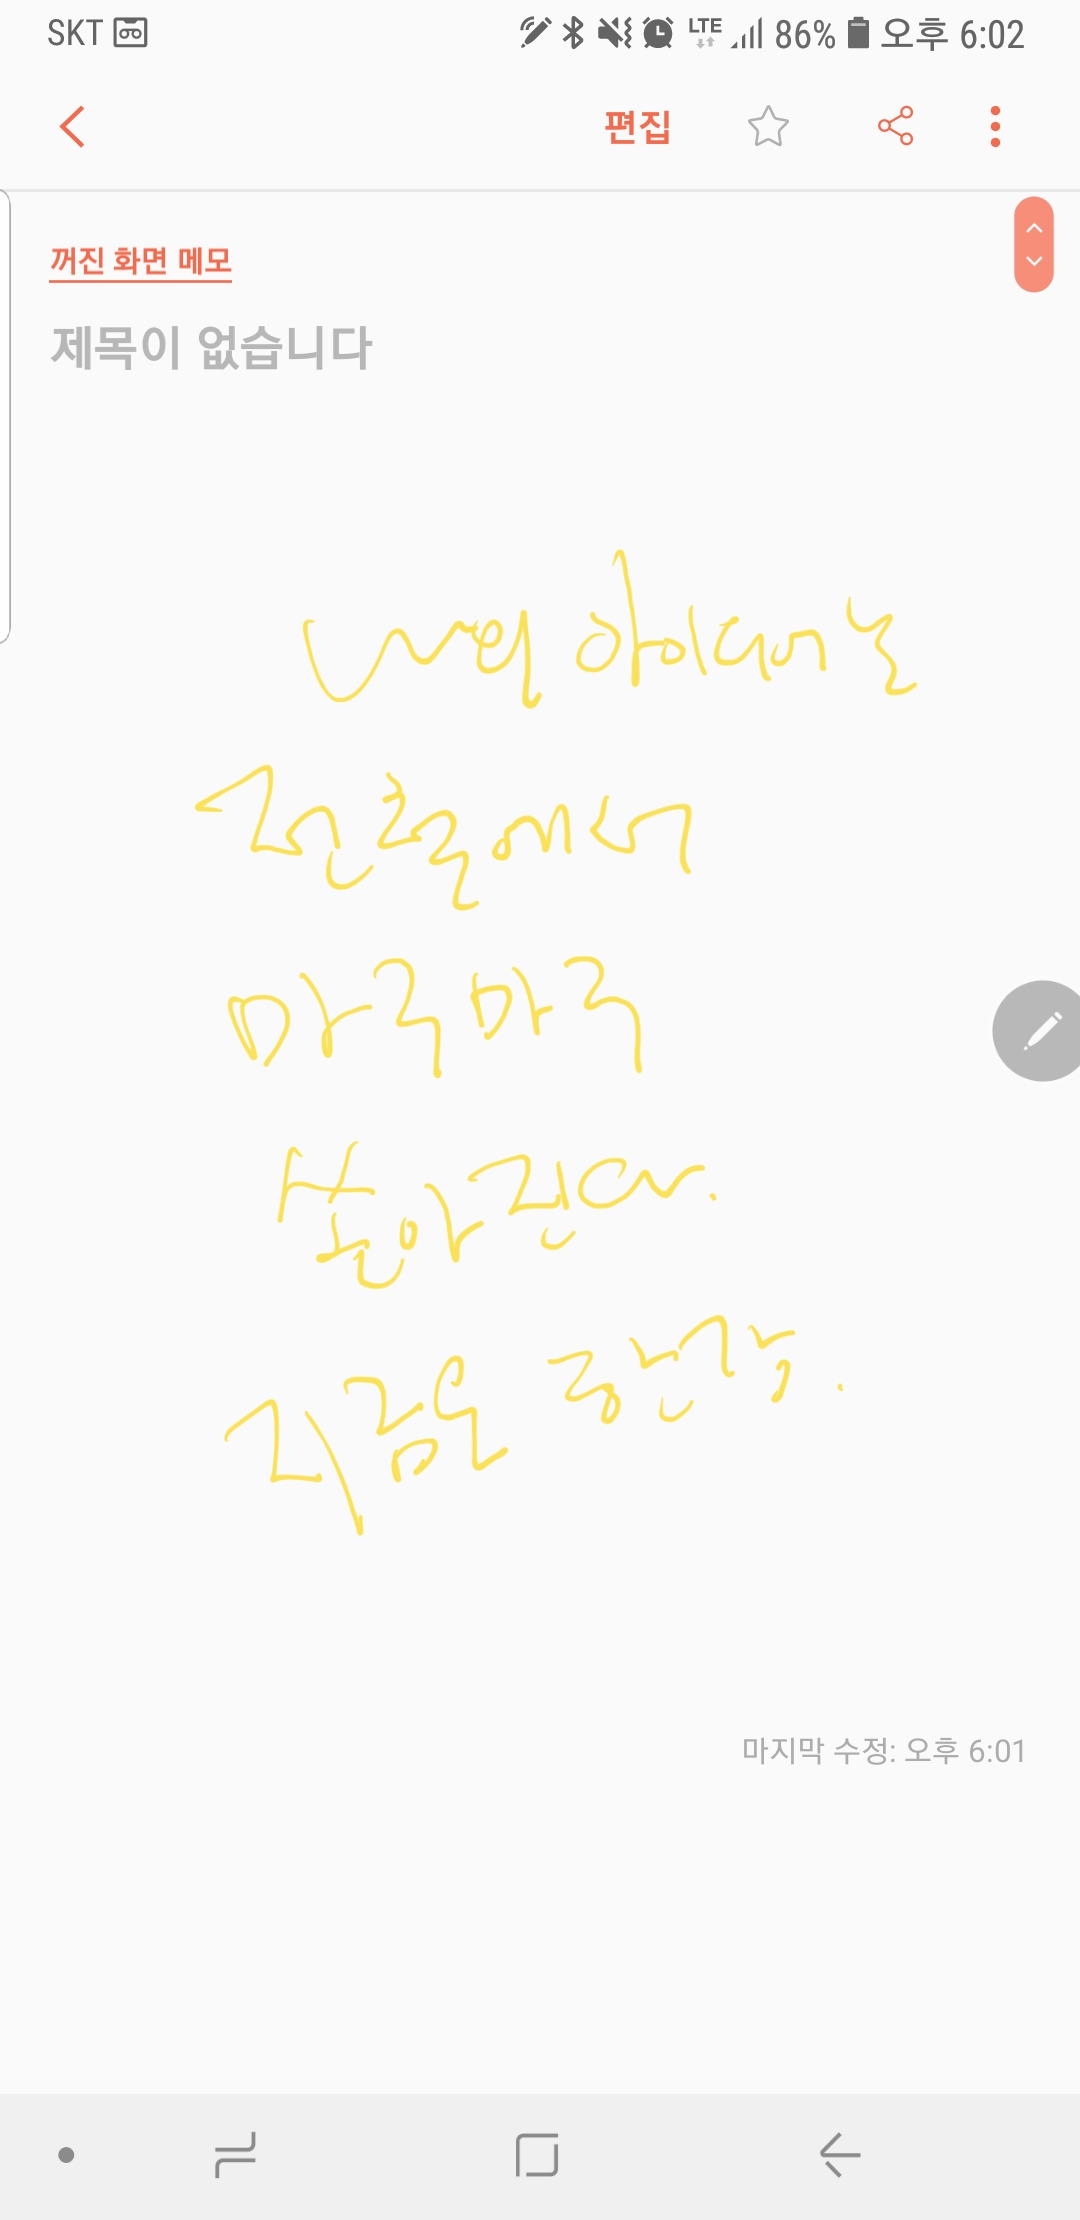 SKT LTE 86% 오후 6:02
편집
꺼진 화면 메모
제목이 없습니다
나의 아이디어는
전철에서
마구마구
쏟아진다.
지금은 한강.
마지막 수정: 오후 6:01